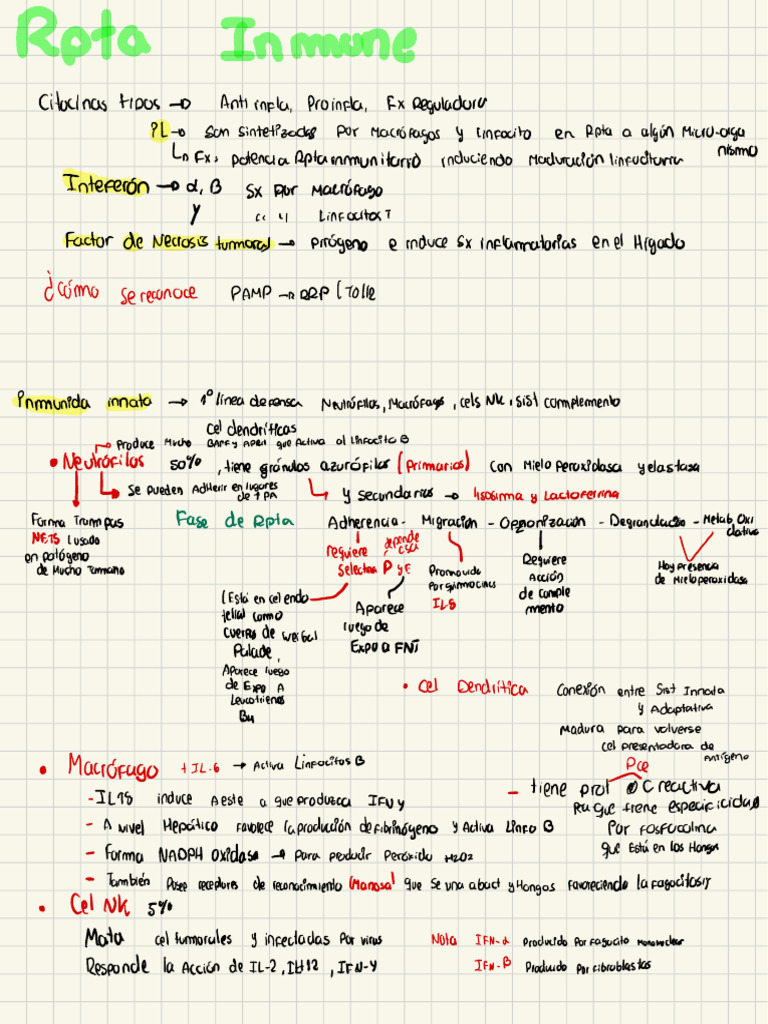 Rpta Inmune
Citocinas tipos → Antiinfla, Proinfla, Fx Reguladora
IL → Son sintetizadas por Macrófagos y linfocito en Rpta a algún Micro-orga
nismo
↳ Fx, potencia Rpta inmunitario induciendo Maduración linfocitaria
Interferón → α, β Sx por Macrófago
γ " " Linfocitos T
Factor de Necrosis tumoral → Pirógeno e induce Sx inflamatorias en el Hígado
¿Cómo se reconoce PAMP → RRP (Tolle
Inmunida innata → 1° línea defensa Neutrófilos, Macrófago, cels NK, sist complemento
Cel dendríticas
Produce Mucho BAFF y APRIL que Activa al linfocito B
• Neutrófilos 50%, tiene gránulos azurófilos (Primarios) con Mieloperoxidasa y elastasa
Se pueden Adherir en lugares de ↑ PA
y secundarios → lisosima y Lactoferrina
Forma Trampas
NETS (usado
en patógeno
de Mucho Tamaño
Fase de Rpta Adherencia - Migración - Opsonización - Degranulación - Metab Oxi
dativo
requiere
selectina P y E
depende
Promovida
por quimiocinas
IL8
Requiere
Acción
de comple
mento
Hay presencia
de Mieloperoxidasa
(Está en cel endo
telial como
cuerpos de Weibal
Palade,
Aparece luego
de Expo A
Leucotrienos
B4
Aparece
luego de
Expo a FNT
• Cel Dendrítica Conexión entre Sist Innata
y Adaptativa
Madura para volverse
cel presentadora de
Antígeno
PCR
- tiene prot C reactiva
Pa que tiene especificidad
Por fosfocolina
que Está en los Hongos
• Macrófago + IL-6 → Activa Linfocitos B
- IL18 induce A este a que produzca IFNγ
- A nivel Hepático favorece la producción de fibrinógeno y Activa Linfo B
- Forma NADPH Oxidasa → para producir Peróxido H2O2
- También Posee receptores de reconocimiento (Manosa) que se una a bact y Hongos favoreciendo la fagocitosis
• Cel NK 5%
Mata cel tumorales y infectadas por virus
Responde la Acción de IL-2, IL-12, IFN-γ
Nota IFN-α Producido por fagocito mononuclear
IFN-β Producido por fibroblastos